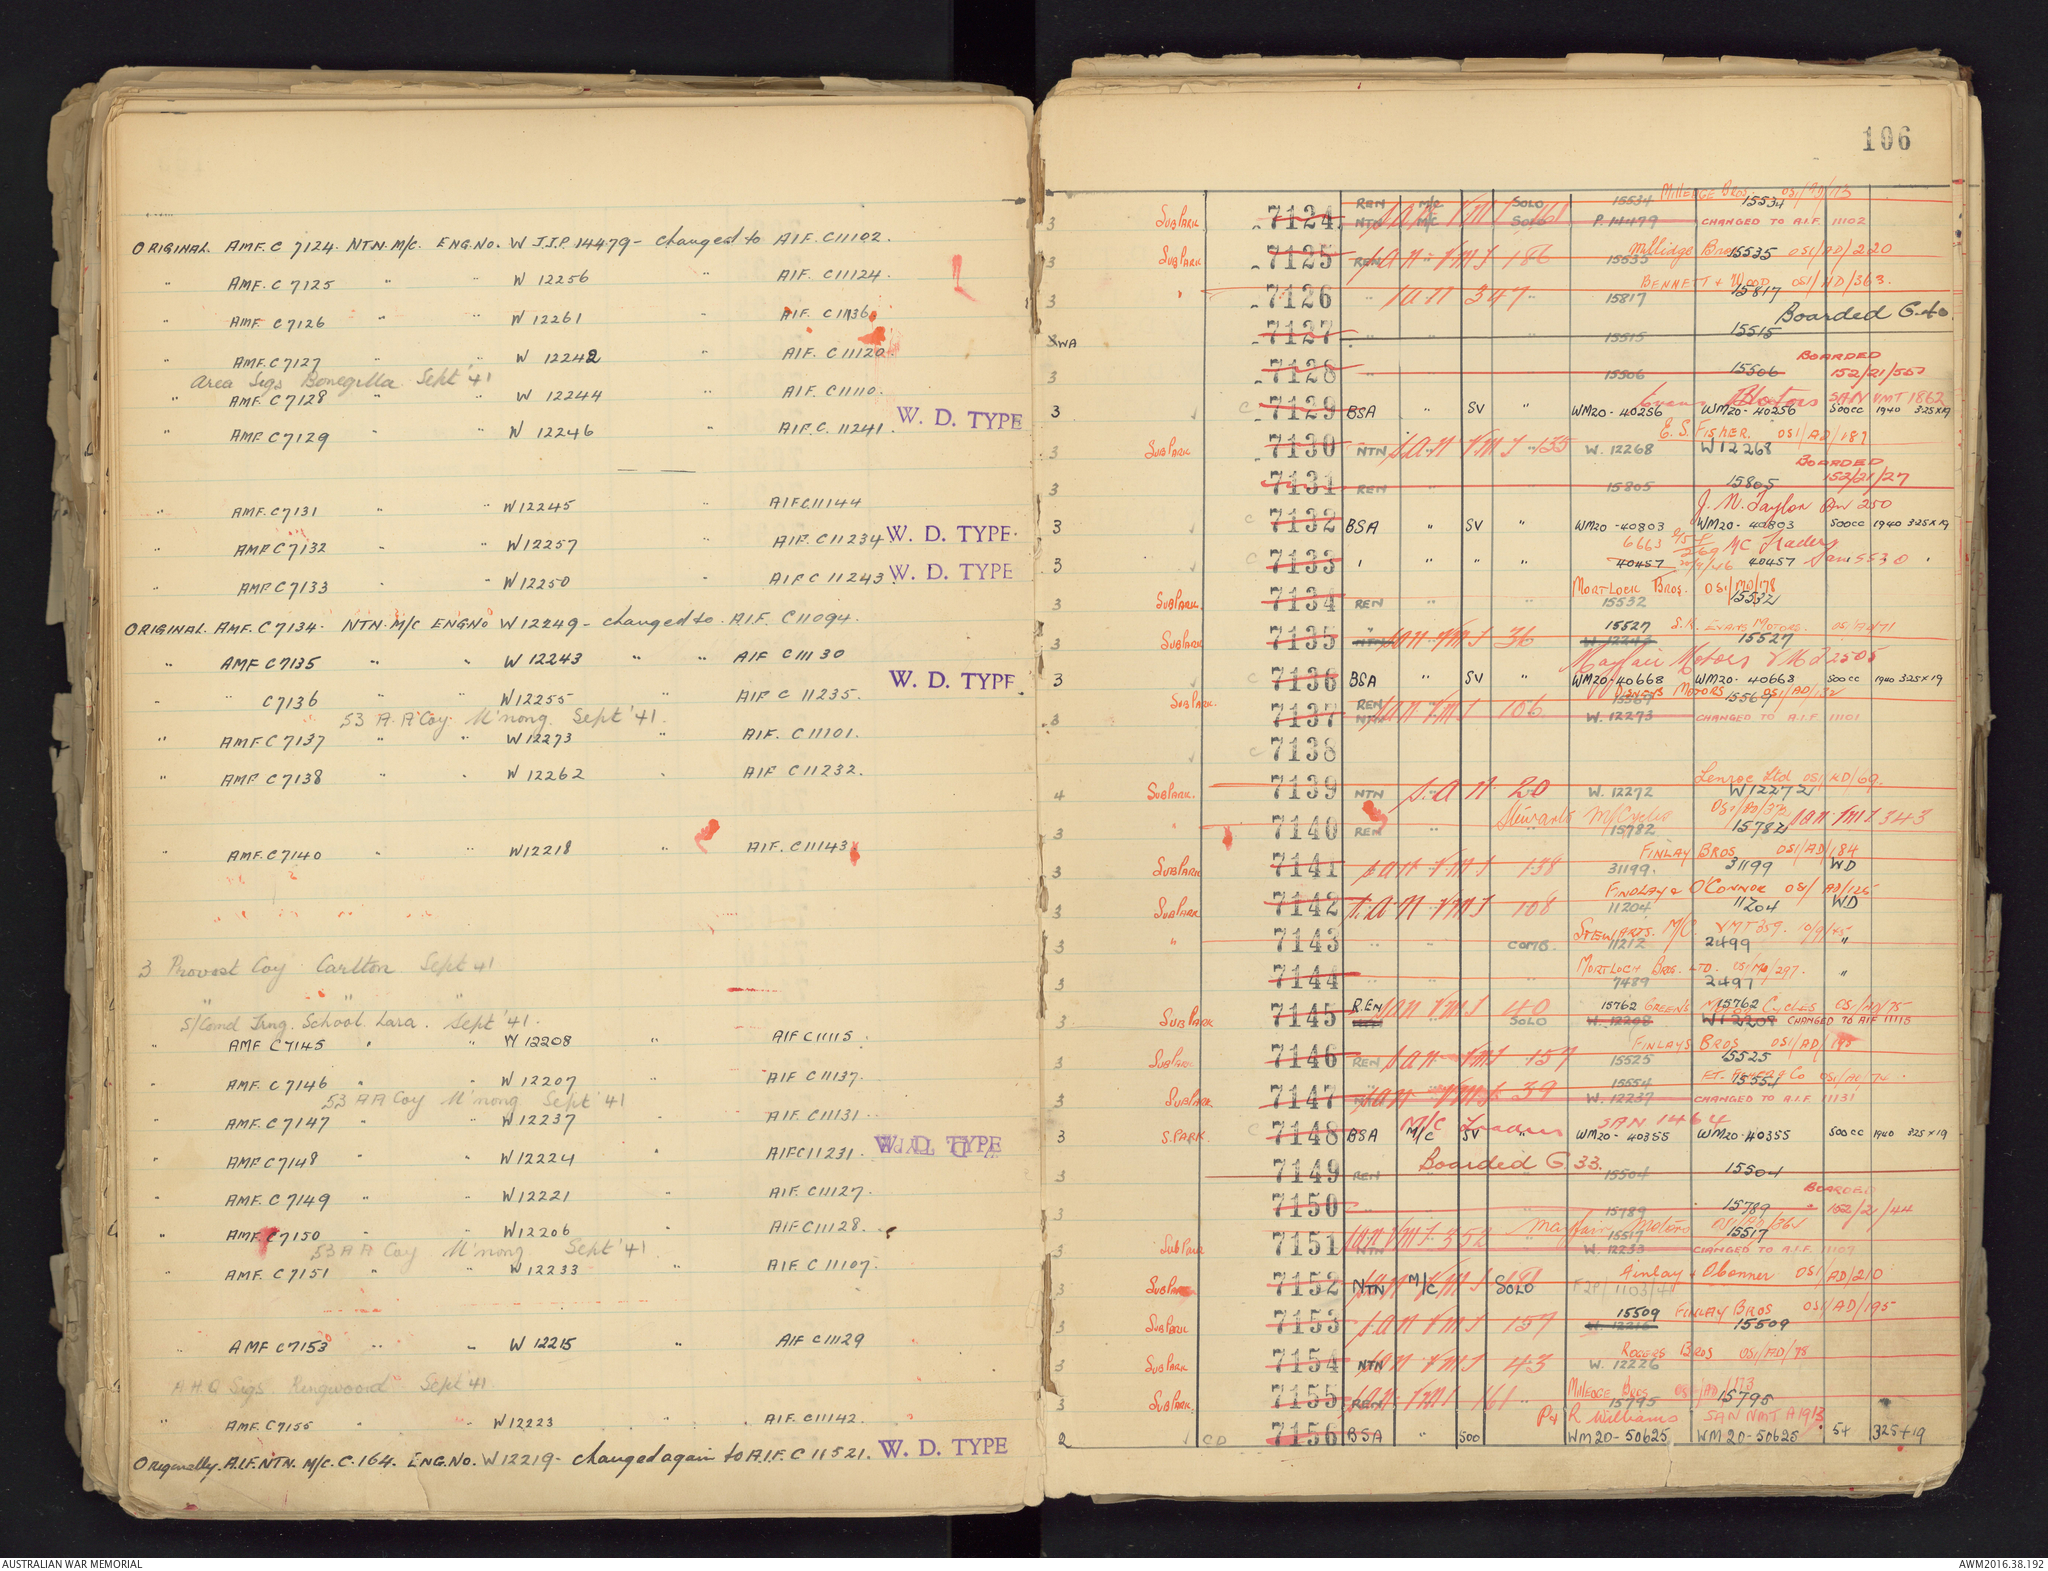 ORIGINAL AMF. C 7124 NTN. M/C. ENG. No. W J.J.P. 14479 - changed to AIF. C11102.
" AMF. C 7125 " " W 12256 " AIF. C11124.
" AMF C7126 " " W 12261 " AIF. C11136
" AMF. C7127 " " W 12242 " AIF. C 11120.
Area Sigs Bonegilla Sept '41
" AMF. C7128 " " W 12244 " AIF. C11110.
" AMF. C7129 " " W 12246 " AIF. C. 11241. W. D. TYPE
AMF. C7131 " " W12245 " AIF C11144
" AMF C7132 " W12257 " AIF. C11234 W. D. TYPE
" AMF C7133 " W12250 AIF C 11243 W. D. TYPE
ORIGINAL. AMF. C7134. NTN. M/C ENG No W12249 - changed to. AIF. C11094.
" AMF C7135 " " W 12243 " " AIF C11130
" C7136 " W12255 " AIF C 11235. W. D. TYPE.
53 A.A Coy. M'nong. Sept '41.
" AMF. C7137 " " W12273 " AIF. C11101.
" AMF C7138 " " W 12262 " AIF C11232.
" AMF. C7140 " " W12218 " AIF. C11143
3 Provost Coy Carlton Sept 41
" " "
S/Comd Trng. School. Lara. Sept '41.
" AMF C7145 " " W 12208 " AIF C11115
" AMF. C7146 " " W 12207 AIF C11137.
53 AA Coy M'nong Sept '41
" AMF. C7147 " W12237 AIF. C11131.
" AMF C7148 " " W12224 " AIF C11231. W. D. TYPE
" AMF. C7149 " " W12221 AIF. C11127.
" AMF. C7150 " W12206 AIF C11128.
53 A A Coy M'nong Sept '41
" AMF. C7151 " " W12233 " AIF C 11107.
" AMF C7153 " " W 12215 " AIF C11129
A.H.Q Sigs. Ringwood Sept '41.
" AMF. C7155 " " W12223 " AIF. C11142.
Originally A.I.F. NTN. M/C. C. 164. ENG. No. W12219 - changed again to A.I.F. C 11521. W. D. TYPE
106
MILLEDGE BROS.
3 SUB PARK 7124 REN M/C SOLO 15534 15534
NTN M/C SOLO P. 14479 CHANGED TO A.I.F. 11102
3 SUB PARK 7125 REN SAN VMT 186 15535 Millidge Bros 15535 OSI/AD/220
BENNETT & WOOD OSI/AD/363.
3 " 7126 " SAN 347 " 15817 15817
Boarded G. 40.
WA 7127 " " " 15515 15515
BOARDED
3 7128 " 15506 15506 152/21/507
Evans Motors SAN VMT 1862
3 C 7129 BSA " SV " WM20-40256 WM20-40256 500cc 1940 325x19
E. S. FISHER. OSI/AD/187
3 SUB PARK 7130 NTN SAN VMT 135 W. 12268 W12268
BOARDED
3 7131 REN " " 15805 15805 152/21/27
J. N. Taylor 250
3 C 7132 BSA " SV " WM20-40803 WM20-40803 500cc 1940 325x19
6663 M/C Traders
3 C 7133 " " " " 40457 40457 San 5530
MORTLOCK BROS. OSI/MO/178
3 SUB PARK. 7134 REN " " 15532 15532
15527 S.R. EVANS MOTORS. OSI/AD/71
3 SUB PARK 7135 NTN SAN VMT 36 W 12243 15527
Mayfair Motors VMT 2505
3 7136 BSA " SV " WM20-40668 WM20-40668 500cc 1940 325x19
3 SUB PARK. 7137 REN SAN VMT 106 15567 MOTORS 15567 OSI/AD/152
NTN W. 12273 CHANGED TO A.I.F. 11101
C 7138
Lenroc Ltd OSI/AD/69.
4 SUB PARK. 7139 NTN S.A.N. 20 W. 12272 W12272
3 " 7140 REN " Stewarts M/Cycles 15782 OSI/AD/373 15782 SAN VMT 343
FINLAY BROS OSI/AD/184
3 SUB PARK 7141 SAN VMT 138 31199. 31199 WD
FINDLAY & O'CONNOR OSI/AD/125
3 SUB PARK 7142 SAN VMT 108 11204 11204 WD
STEWARTS. M/C. VMT 359. 10/9/45
3 " 7143 " " COMB. 11212 2499 "
MORTLOCK BROS. LTD. OSI/MO/297.
3 7144 " " " 7489 2497 "
3 SUB PARK 7145 R.EN SAN VMT 40 15762 GREENS 15762 CYCLES OSI/AD/75
SOLO W. 12208 W12208 CHANGED TO AIF 11115
FINLAYS BROS OSI/AD/195
3 SUB PARK 7146 REN SAN VMT 157 15525 15525
3 SUB PARK 7147 SAN VMT 39 15554 15554 OSI/AD/74
W. 12237 CHANGED TO A.I.F. 11131
M/C Traders SAN 1464
3 S. PARK. C 7148 BSA M/C SV " WM20-40355 WM20-40355 500cc 1940 325x19
3 7149 REN Boarded G. 33. 15504 15504
BOARDED
3 7150 " " " 15789 15789 152/21/44
3 SUB PARK 7151 SAN VMT 352 Mayfair Motors 15517 15517
NTN W. 12233 CHANGED TO A.I.F. 11107
Finlay & Oconner OSI/AD/210
3 SUB PARK 7152 NTN M/C SAN VMT 181 SOLO
15509 FINLAY BROS OSI/AD/195
3 SUB PARK 7153 SAN VMT 157 15509
ROGERS BROS OSI/AD/78
3 SUB PARK 7154 NTN SAN VMT 43 W. 12226
MILLEDGE BROS OSI/AD/173
3 SUB PARK. 7155 REN SAN VMT 161 " 15795 15795
R Williams SAN NMT A1913
2 CD 7156 BSA " 500 WM20-50625 WM20-50625 54 325x19
AUSTRALIAN WAR MEMORIAL
AWM2016.38.192